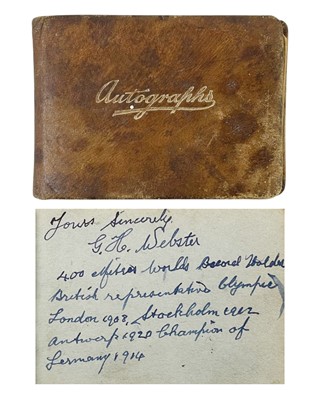 Autographs
Yours Sincerely
G. H. Webster
400 Metres Worlds Record Holder
British representative Olympic
London 1908, Stockholm 1912
Antwerp 1920 Champion of
Germany 1914